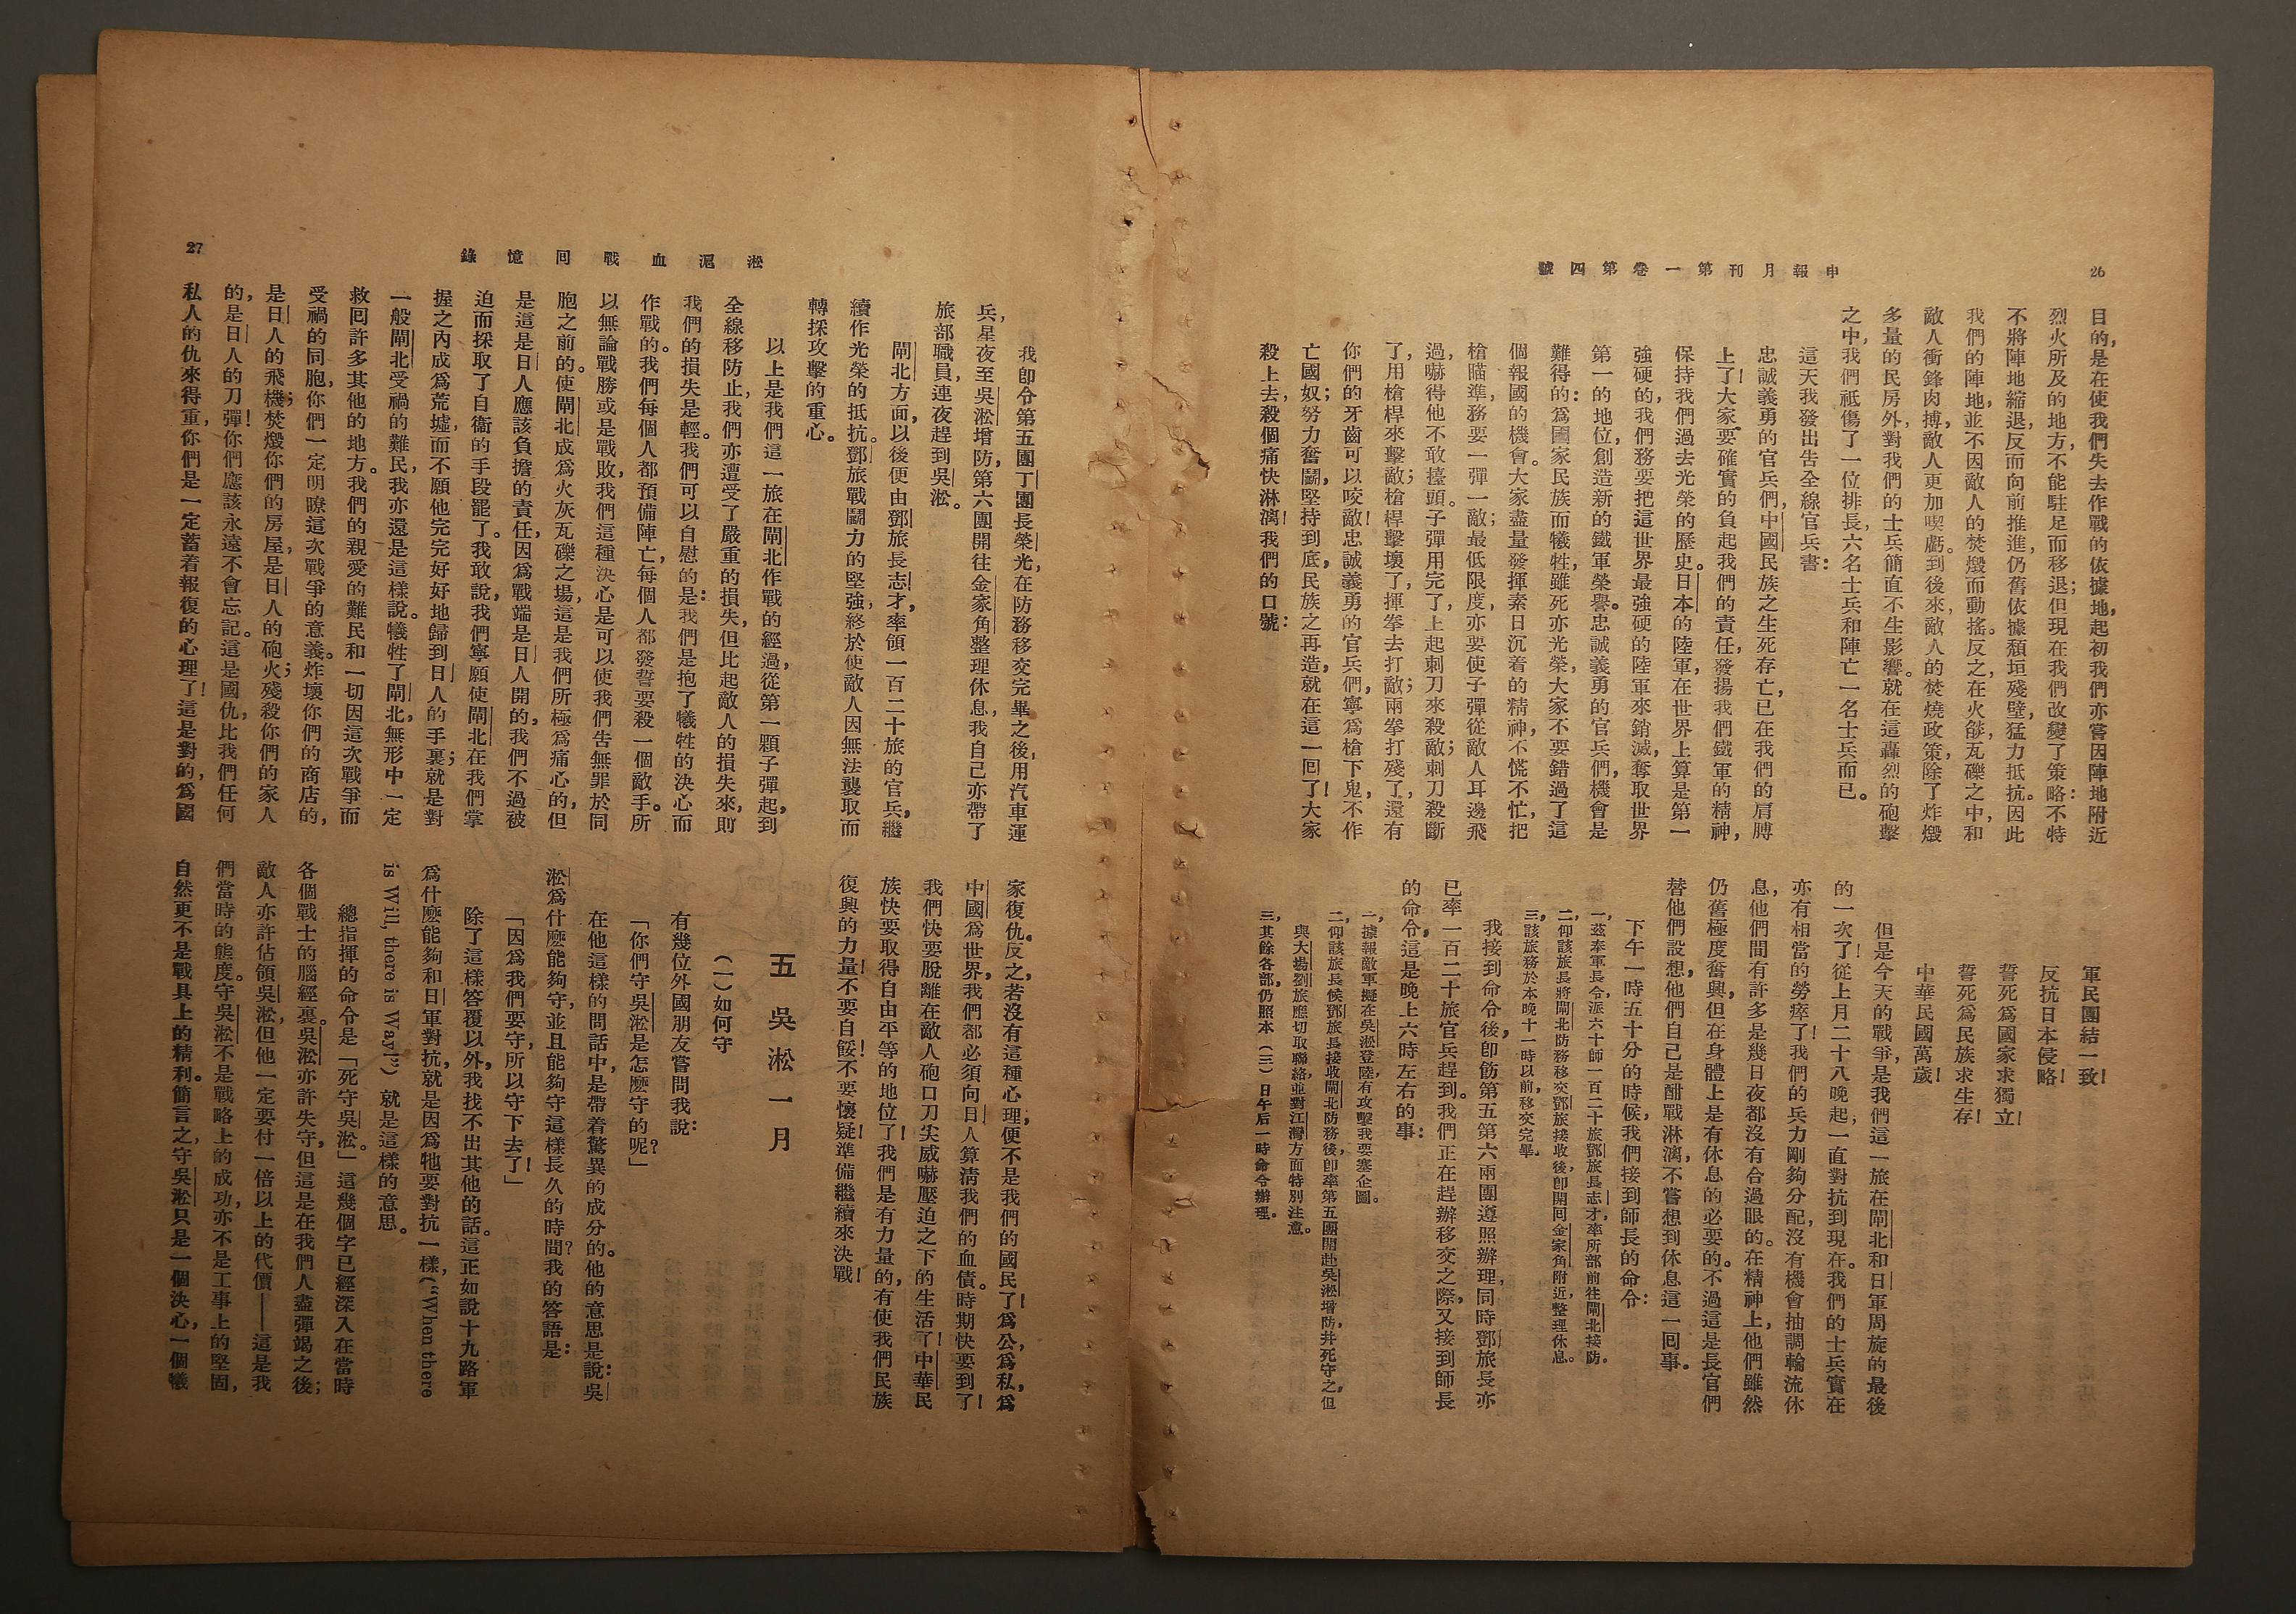 26
申報月刊第一卷第四號
目的，是在使我們失去作戰的依據地，起初我們亦嘗因陣地附近
烈火所及的地方，不能駐足而移退；但現在我們改變了策略：不特
不將陣地縮退，反而向前推進，仍舊依據頹垣殘壁，猛力抵抗。因此
我們的陣地，並不因敵人的焚燬而動搖。反之，在火燄瓦礫之中，和
敵人衝鋒肉搏，敵人更加喫虧。到後來，敵人的焚燒政策，除了炸燬
多量的民房外，對我們的士兵簡直不生影響。就在這轟烈的砲擊
之中，我們祗傷了一位排長，六名士兵和陣亡一名士兵而已。
這天我發出告全線官兵書：
忠誠義勇的官兵們，中國民族之生死存亡，已在我們的肩膊
上了！大家要確實的負起我們的責任，發揚我們鐵軍的精神，
保持我們過去光榮的歷史。日本的陸軍，在世界上算是第一
強硬的，我們務要把這世界最強硬的陸軍來銷滅，奪取世界
第一的地位，創造新的鐵軍榮譽。忠誠義勇的官兵們，機會是
難得的：爲國家民族而犧牲，雖死亦光榮，大家不要錯過了這
個報國的機會。大家盡量發揮素日沉着的精神，不慌不忙，把
槍瞄準，務要一彈一敵；最低限度，亦要使子彈從敵人耳邊飛
過，嚇得他不敢擡頭。子彈用完了，上起刺刀來殺敵；刺刀殺斷
了，用槍桿來擊敵；槍桿擊壞了，揮拳去打敵；兩拳打殘了，還有
你們的牙齒可以咬敵！忠誠義勇的官兵們，寧爲槍下鬼，不作
亡國奴；努力奮鬬，堅持到底，民族之再造，就在這一囘了！大家
殺上去，殺個痛快淋漓！我們的口號：
軍民團結一致！
反抗日本侵略！
誓死爲國家求獨立！
誓死爲民族求生存！
中華民國萬歲！
但是今天的戰爭，是我們這一旅在閘北和日軍周旋的最後
的一次了！從上月二十八晚起，一直對抗到現在。我們的士兵實在
亦有相當的勞瘁了！我們的兵力剛夠分配，沒有機會抽調輪流休
息，他們間有許多是幾日夜都沒有合過眼的。在精神上，他們雖然
仍舊極度奮興，但在身體上是有休息的必要的。不過這是長官們
替他們設想，他們自己是酣戰淋漓，不嘗想到休息這一囘事。
下午一時五十分的時候，我們接到師長的命令：
一，茲奉軍長令派六十師一百二十旅鄧旅長志才，率所部前往閘北接防。
二，仰該旅長將閘北防務移交鄧旅接收後，卽開囘金家角附近，整理休息。
三，該旅務於本晚十一時以前，移交完畢。
我接到命令後，卽飭第五第六兩團遵照辦理，同時鄧旅長亦
已率一百二十旅官兵趕到。我們正在趕辦移交之際，又接到師長
的命令，這是晚上六時左右的事：
一，據報敵軍擬在吳淞登陸，有攻擊我要塞企圖。
二，仰該旅長俟鄧旅長接收閘北防務後，卽率第五團開赴吳淞增防，幷死守之，但
與大場劉旅應切取聯絡，並對江灣方面特別注意。
三，其餘各部，仍照本（三）日午后一時命令辦理。
我卽令第五團丁團長榮光，在防務移交完畢之後，用汽車運
兵，星夜至吳淞增防，第六團開往金家角整理休息，我自己亦帶了
旅部職員，連夜趕到吳淞。
閘北方面，以後便由鄧旅長志才，率領一百二十旅的官兵，繼
續作光榮的抵抗。鄧旅戰鬭力的堅強，終於使敵人因無法襲取而
轉採攻擊的重心。
以上是我們這一旅在閘北作戰的經過，從第一顆子彈起，到
全線移防止，我們亦遭受了嚴重的損失，但比起敵人的損失來，則
我們的損失是輕。我們可以自慰的是：我們是抱了犧牲的決心而
作戰的。我們每個人都預備陣亡，每個人都發誓要殺一個敵手。所
以無論戰勝或是戰敗，我們這種決心是可以使我們告無罪於同
胞之前的。使閘北成爲火灰瓦礫之場，這是我們所極爲痛心的，但
是這是日人應該負擔的責任，因爲戰端是日人開的，我們不過被
迫而採取了自衞的手段罷了。我敢說，我們寧願使閘北在我們掌
握之內成爲荒墟，而不願他完完好好地歸到日人的手裏；就是對
一般閘北受禍的難民，我亦還是這樣說。犧牲了閘北，無形中一定
救囘許多其他的地方。我們的親愛的難民和一切因這次戰爭而
受禍的同胞，你們一定明瞭這次戰爭的意義。炸壞你們的商店的，
是日人的飛機；焚燬你們的房屋，是日人的砲火；殘殺你們的家人
的，是日人的刀彈！你們應該永遠不會忘記。這是國仇，比我們任何
私人的仇來得重，你們是一定蓄着報復的心理了！這是對的，爲國
家復仇。反之，若沒有這種心理，便不是我們的國民了！爲公，爲私，爲
中國，爲世界，我們都必須向日人算淸我們的血債。時期快要到了！
我們快要脫離在敵人砲口刀尖威嚇壓迫之下的生活了！中華民
族快要取得自由平等的地位了！我們是有力量的，有使我們民族
復興的力量！不要自餒！不要懷疑！準備繼續來決戰！
五　吳淞一月
（一）如何守
有幾位外國朋友嘗問我說：
「你們守吳淞是怎麽守的呢？」
在他這樣的問話中，是帶着驚異的成分的。他的意思是說：吳
淞爲什麽能夠守，並且能夠守這樣長久的時間？我的答語是：
「因爲我們要守，所以守下去了！」
除了這樣答覆以外，我找不出其他的話。這正如說十九路軍
爲什麽能夠和日軍對抗，就是因爲牠要對抗一樣，（“When there
is Will, there is Way!”）就是這樣的意思。
總指揮的命令是「死守吳淞。」這幾個字已經深入在當時
各個戰士的腦經裏。吳淞亦許失守，但這是在我們人盡彈竭之後；
敵人亦許佔領吳淞，但他一定要付一倍以上的代價——這是我
們當時的態度。守吳淞不是戰略上的成功，亦不是工事上的堅固，
自然更不是戰具上的精利。簡言之，守吳淞只是一個決心，一個犧
淞滬血戰囘憶錄
27